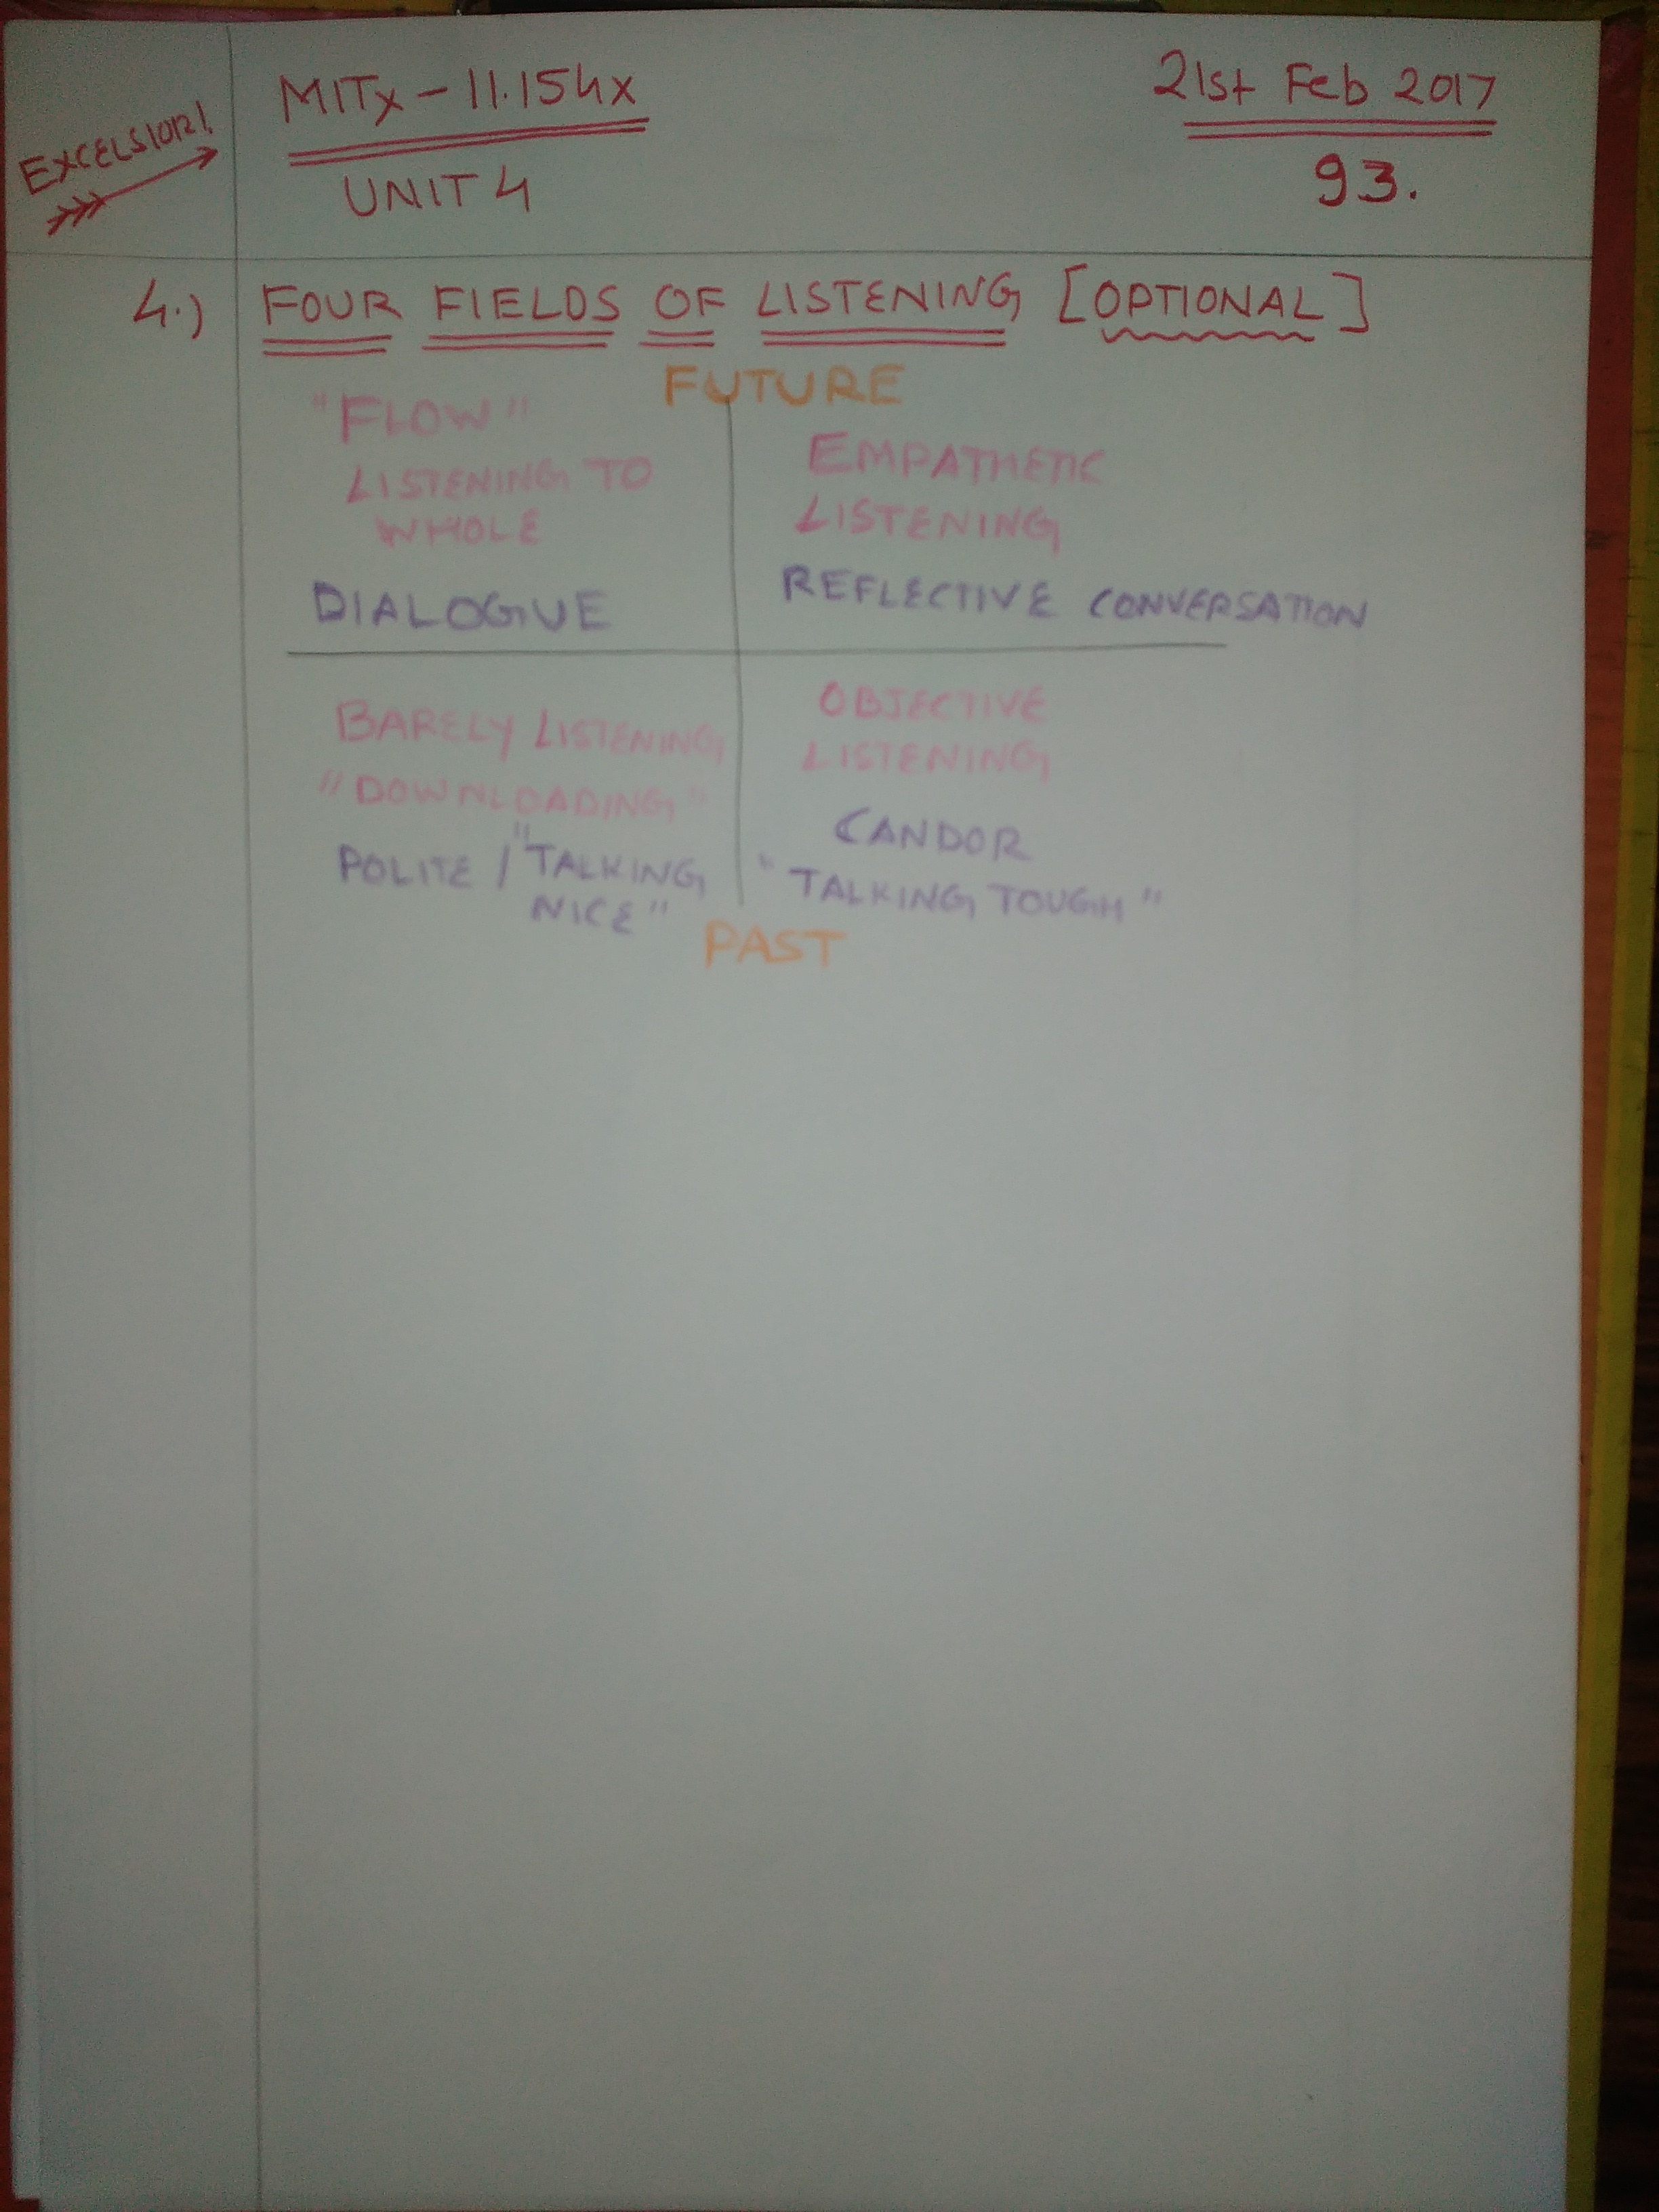 EXCELSIOR!
MITx - 11.154x
UNIT 4
21st Feb 2017
93.
4.) FOUR FIELDS OF LISTENING [OPTIONAL]
FUTURE
"FLOW"
LISTENING TO
WHOLE
DIALOGUE
EMPATHETIC
LISTENING
REFLECTIVE CONVERSATION
BARELY LISTENING
"DOWNLOADING"
POLITE / "TALKING
NICE"
OBJECTIVE
LISTENING
CANDOR
"TALKING TOUGH"
PAST